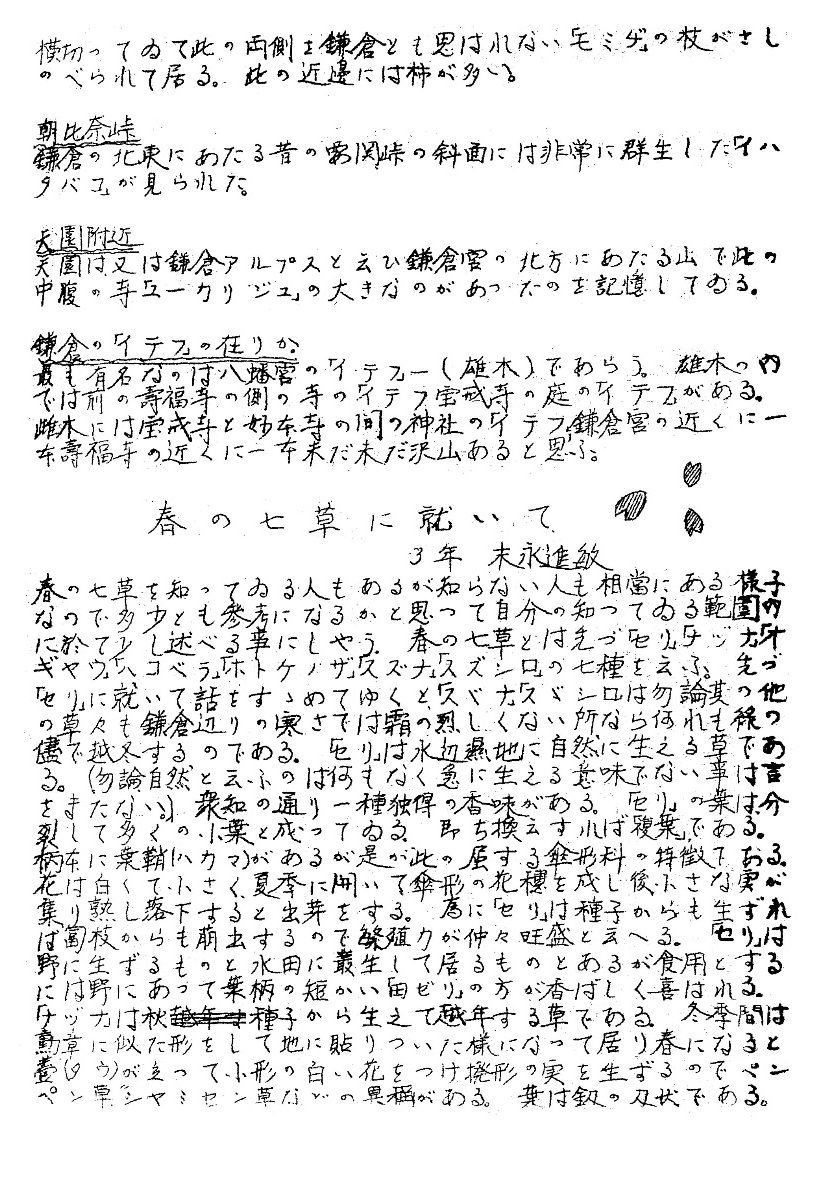 横切ってゐて此の両側は鎌倉とも思はれない「モミヂ」の枝がさし
のべられて居る。此の近邊には柿が多い。
朝比奈峠
鎌倉の北東にあたる昔の関峠の斜面には非常に群生した「イハ
タバコ」が見られた。
天園附近
天園は又は鎌倉アルプスと云ひ鎌倉宮の北方にあたる山で此の
中腹の寺「ユーカリジュ」の大きなのがあったのを記憶してゐる。
鎌倉の「イテフ」の在りか
最も有名なのは八幡宮の「イテフ」ー(雄木)であらう。雄木の内
では前の壽福寺の側の寺の「イテフ」宝戒寺の庭の「イテフ」がある。
雌木には宝戒寺と妙本寺の間の神社の「イテフ」鎌倉宮の近くに一
本壽福寺の近くに一本未だ未だ沢山あると思ふ。
春の七草に就いて
3年 末永進敏
春の七草を知ってゐる人もあるが知らない人も相當にある様子
なので多少とも参考になるかと思って自分の知ってゐる範囲内
に於て少し述べる事にしやう。春の七草とは先づ「セリ」「ナヅナ」「オ
ギヤウ」「ハコベラ」「ホトケノザ」「スズナ」「スズシロ」の七種を云ふ。先づ
「セリ」に就いて話をすゝめてゆくと、「スズナ」「スズシロ」は勿論其の他
の草々も鎌倉辺りの寒さでは霜の烈しくない所なら何れも緑の
儘で越冬するのである。「セリ」は水辺濕地に自然に生える草であ
る。(勿論自然と云ふのは何もなく急に生える意味でない事は言
をまたない。)衆知の通り一種独得の香味がある。「セリ」の葉は分
裂して多くの小葉と成ってゐる。即ち換云すれば複葉である。
柄本に葉鞘(ハカマ)があるが是が此の属する傘形科の特徴である。
花は白くて小さく夏季に開いて傘形の花穗を成し後小さな実が
集り熟して落下すると出芽をする。為に「セリ」は種子からも生れ
ば冨枝からも萌出するので繁殖力が仲々旺盛と云へる。「セリ」は
野に生ずるものと水田に叢生して居るものとあるが食用とする
には野にあって葉柄の短かい「田ゼリ」の方が香ばしく喜ばれる。
「ナヅナ」は秋種子から生えて越年する草である。冬季間は
蔓草に似た形をして地に貼りついた様になって居り春になると
(タウ)が立って小形の白い花をつけ撥形の実を生ずるのでペン
ペン草シャミセン草などの異稱がある。葉は釼の刃状である。